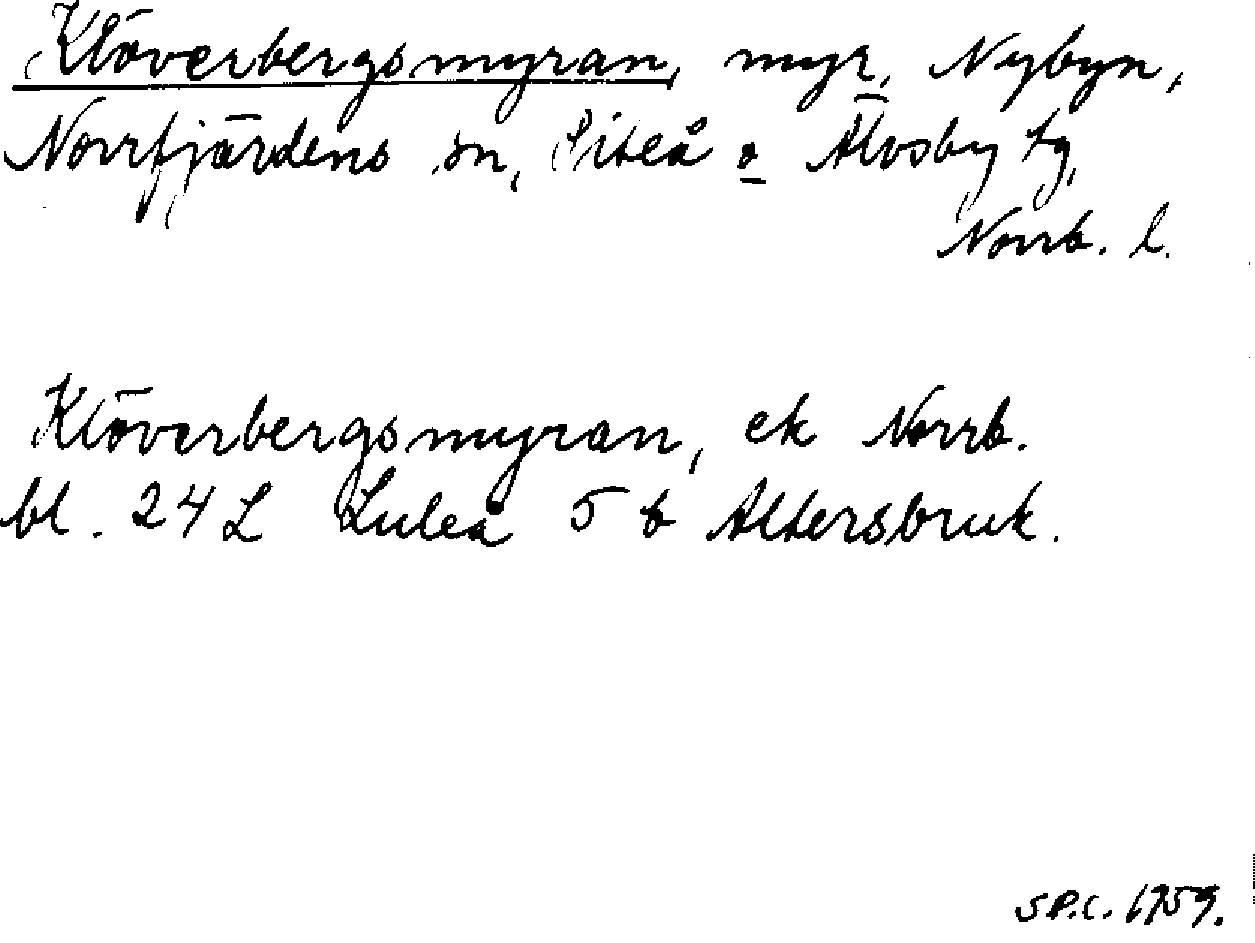 Klöverbergsmyran, myr, Nybyn,
Norrfjärdens sn, Piteå o Älvsby tg,
Norrb. l.
Klöverbergsmyran, ek Norrb.
bl. 24 L Luleå 5 b Altersbruk.
S.P.C. 1959.